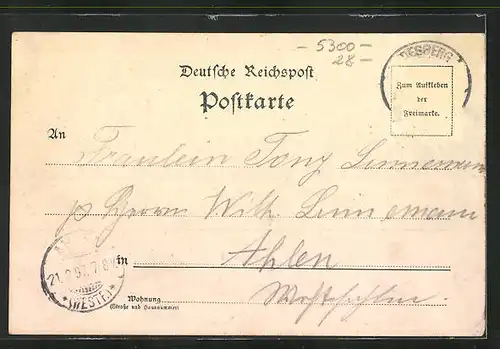 – 5300 –
28 –
DESBERG
Deutsche Reichspost
Postkarte
Zum Aufkleben
der
Freimarke.
An Fräulein Tony Linnemann
p Herrn Wilh. Linnemann
in Ahlen
Westfalen
21. 97. 7-8
*(WESTF.)*
Wohnung
(Straße und Hausnummer)